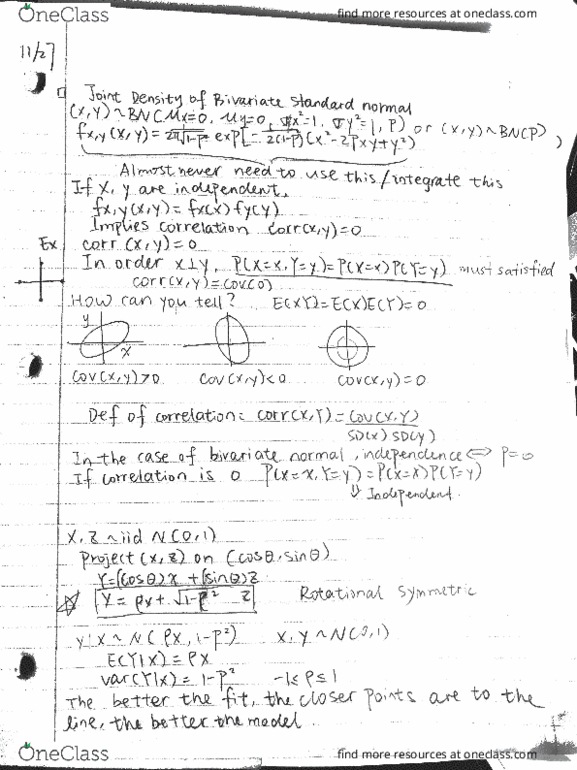 OneClass
find more resources at oneclass.com
11/27
Joint Density of Bivariate Standard normal
(X,Y) ~ BN(Mx=0, My=0, σx²=1, σy²=1, ρ) or (x,y) ~ BN(ρ)
fx,y(x,y) = 1/2π√1-ρ² exp[-1/2(1-ρ²)(x²-2ρxy+y²)
Almost never need to use this/integrate this
If X, Y are independent,
fx,y(x,y) = fx(x) fy(y)
Implies correlation corr(x,y)=0
Ex corr (x,y)=0
In order x⊥y, P(X=x,Y=y)=P(X=x)P(Y=y) must satisfied
corr(x,y)=cov(0)
How can you tell? E(XY)=E(X)E(Y)=0
y
x
cov(x,y)>0 cov(x,y)<0 cov(x,y)=0
Def of correlation: corr(X,Y)=cov(X,Y)
SD(x) SD(y)
In the case of bivariate normal, independence ⇔ ρ=0
If correlation is 0 P(X=x,Y=y)=P(X=x)P(Y=y)
⇓ Independent.
X,Z ~ iid N(0,1)
Project (x,z) on (cosθ, sinθ)
Y=(cosθ)x+(sinθ)z
Y = ρx+√1-ρ² z Rotational Symmetric
Y|X ~ N(ρX, 1-ρ²) X,Y ~ N(0,1)
E(Y|X)=ρX
var(Y|X)=1-ρ² -1≤ρ≤1
The better the fit, the closer points are to the
line, the better the model.
OneClass
find more resources at oneclass.com